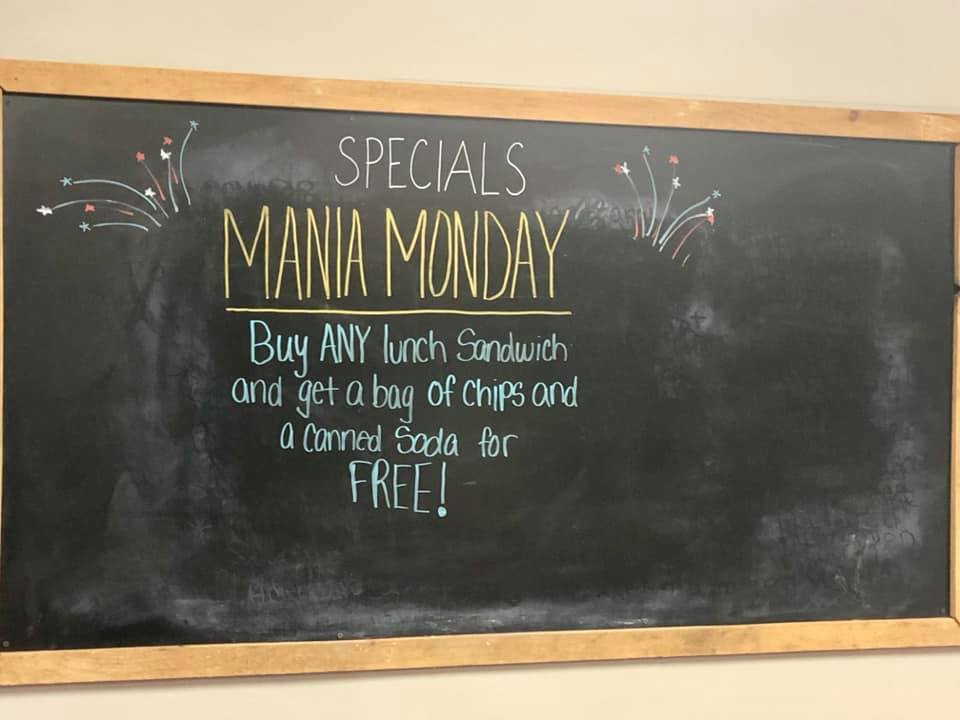 SPECIALS
MANIA MONDAY
Buy ANY lunch Sandwich
and get a bag of chips and
a canned Soda for
FREE!